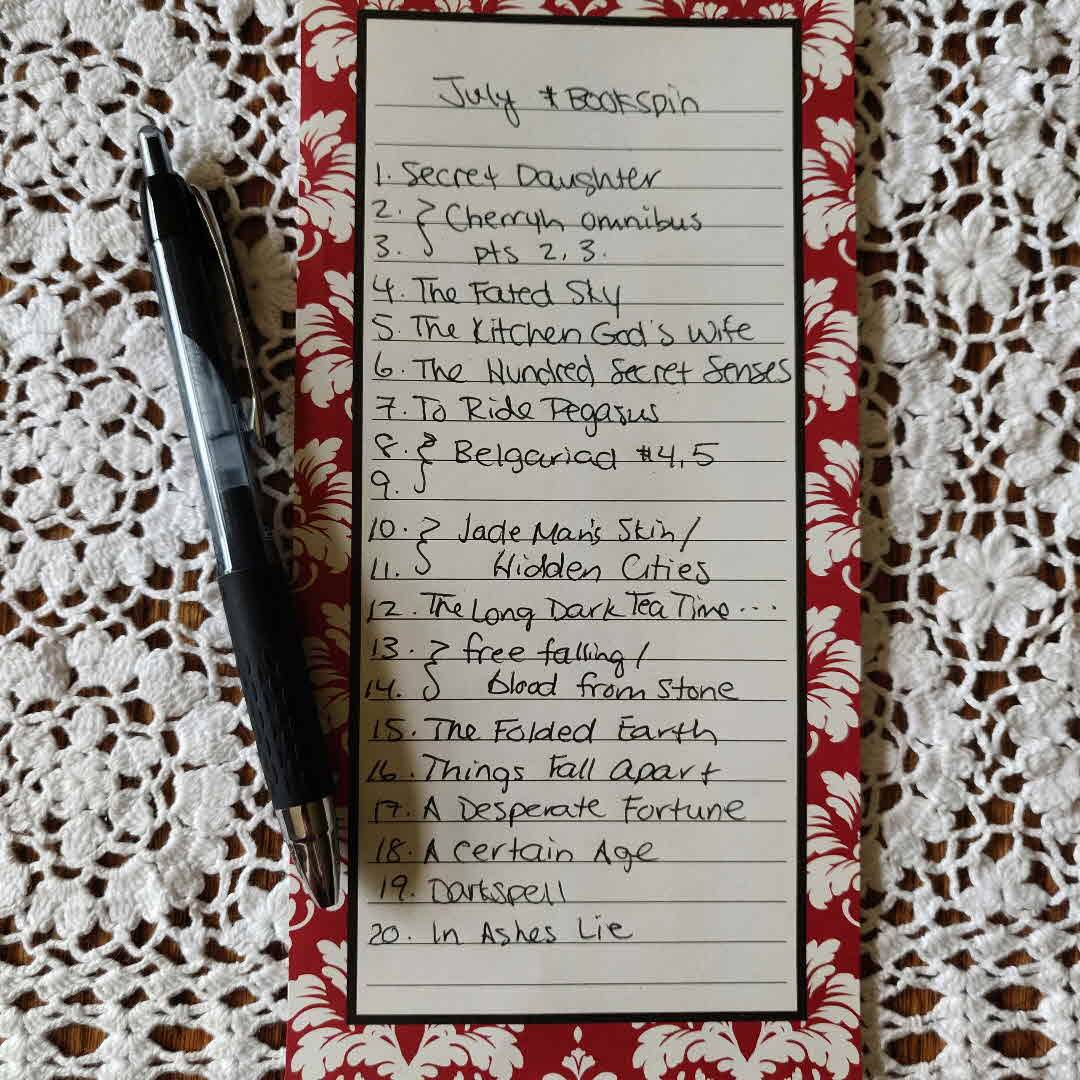 July #BookSpin
1. Secret Daughter
2. } Cherryh omnibus
3. } pts 2, 3.
4. The Fated Sky
5. The Kitchen God's Wife
6. The Hundred Secret Senses
7. To Ride Pegasus
8. } Belgariad #4,5
9. }
10. } Jade Man's Skin/
11. } Hidden Cities
12. The Long Dark Tea Time...
13. } free falling/
14. } blood from stone
15. The Folded Earth
16. Things Fall Apart
17. A Desperate Fortune
18. A Certain Age
19. Darkspell
20. In Ashes Lie